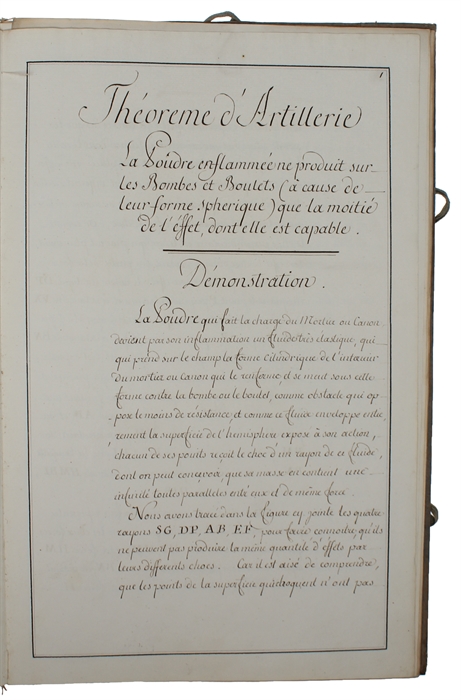 1
Théoreme d'Artillerie
La Poudre enflammée ne produit sur
les Bombes et Boulets (à cause de
leur forme spherique) que la moitié
de l'éffet, dont elle est capable.
Démonstration.
La Poudre qui fait la charge du Mortier ou Canon
devient par son inflammation un fluide très elastique, qui
qui prend sur le champ la forme cilindrique de l'interieur
du mortier ou canon qui le renferme et se meut sous cette
forme contre la bombe ou le boulet, comme obstacle qui op-
-pose le moins de résistance, et comme ce fluide enveloppe entie-
rement la superficie de l'hemisphere exposé à son action,
chacun de ses points reçoit le choc d'un rayon de ce fluide,
dont on peut concevoir que sa masse en contient une
infinité toutes paralleles entr'eux et de même force.
Nous avons tracé dans la figure cy jointe les quatre
rayons SG, DP, AB, EF, pour faire connoitre qu'ils
ne peuvent pas produire la même quantité d'effets par
leurs différents chocs. Car il est aisé de comprendre,
que les points de la superficie qu'ils choquent n'ont pas